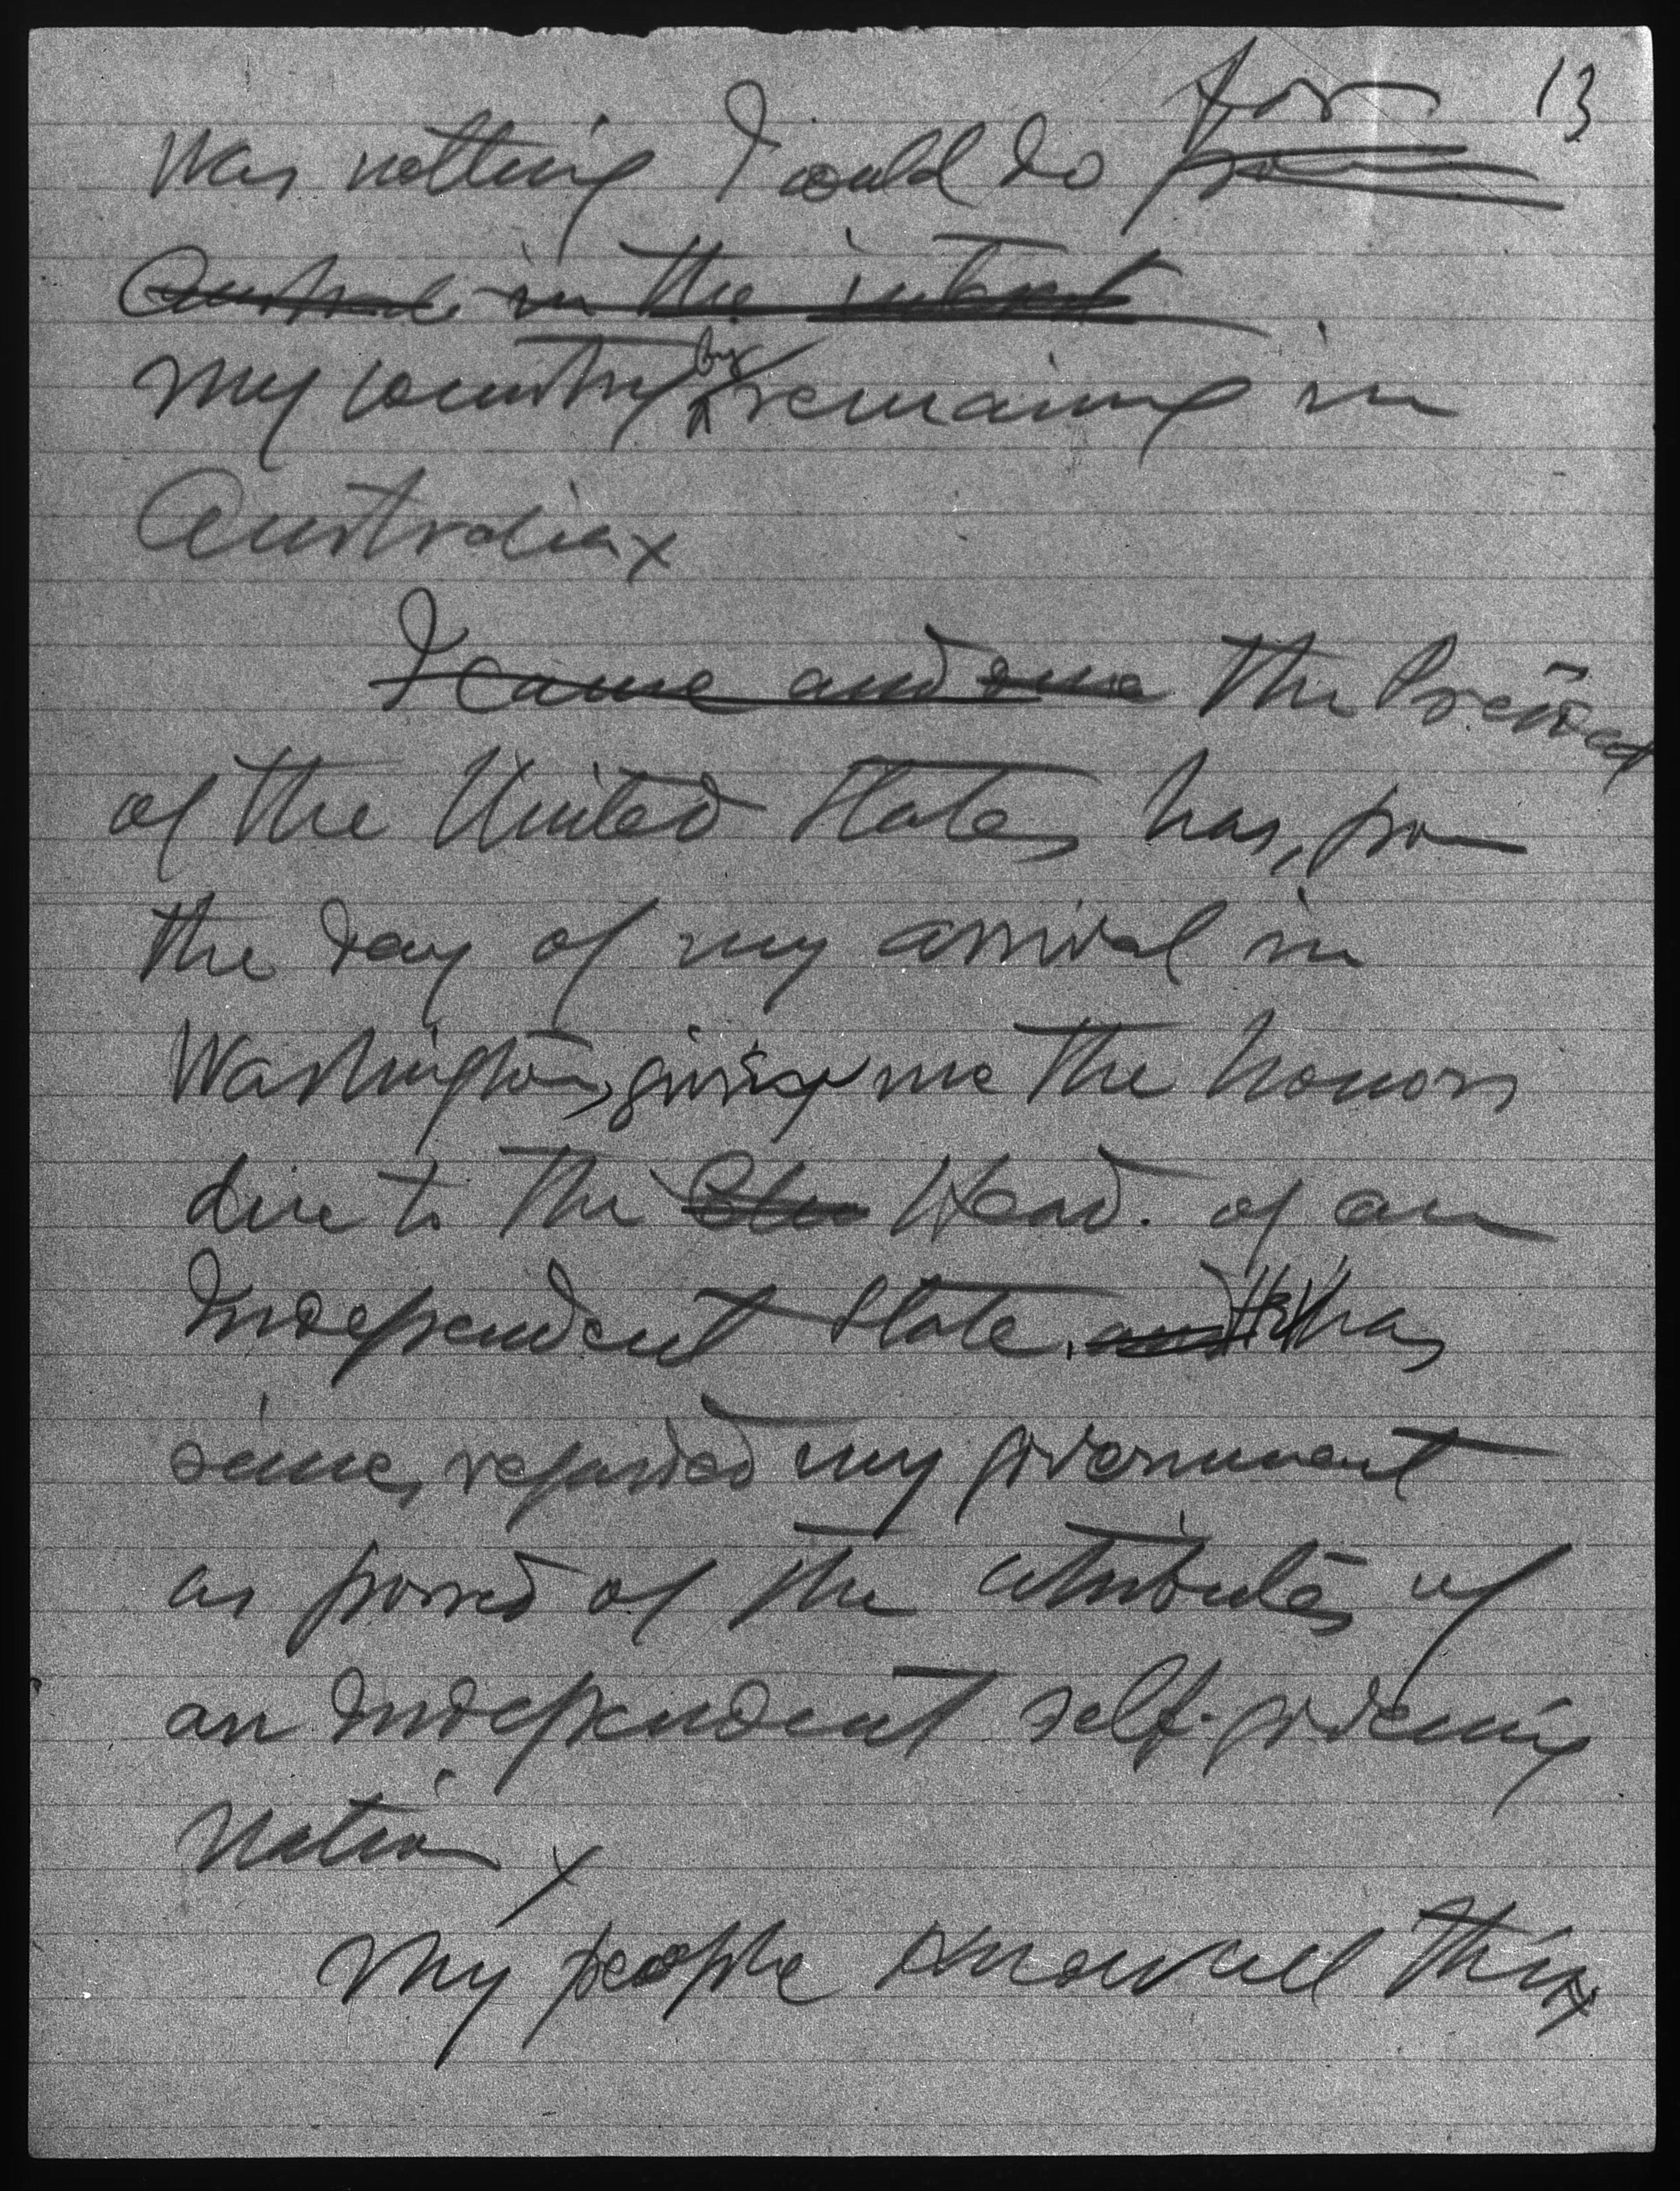 13
was nothing I could do for from
Australia in the interest
my country by remaining in
Australia x
I came and The President
of the United States has, from
the day of my arrival in
Washington, giving me the honors
due to the Head of an
Independent State. and He has
since, regarded my government
as possed of the attributes of
an independent self-governing
Nation x
My people know all this x